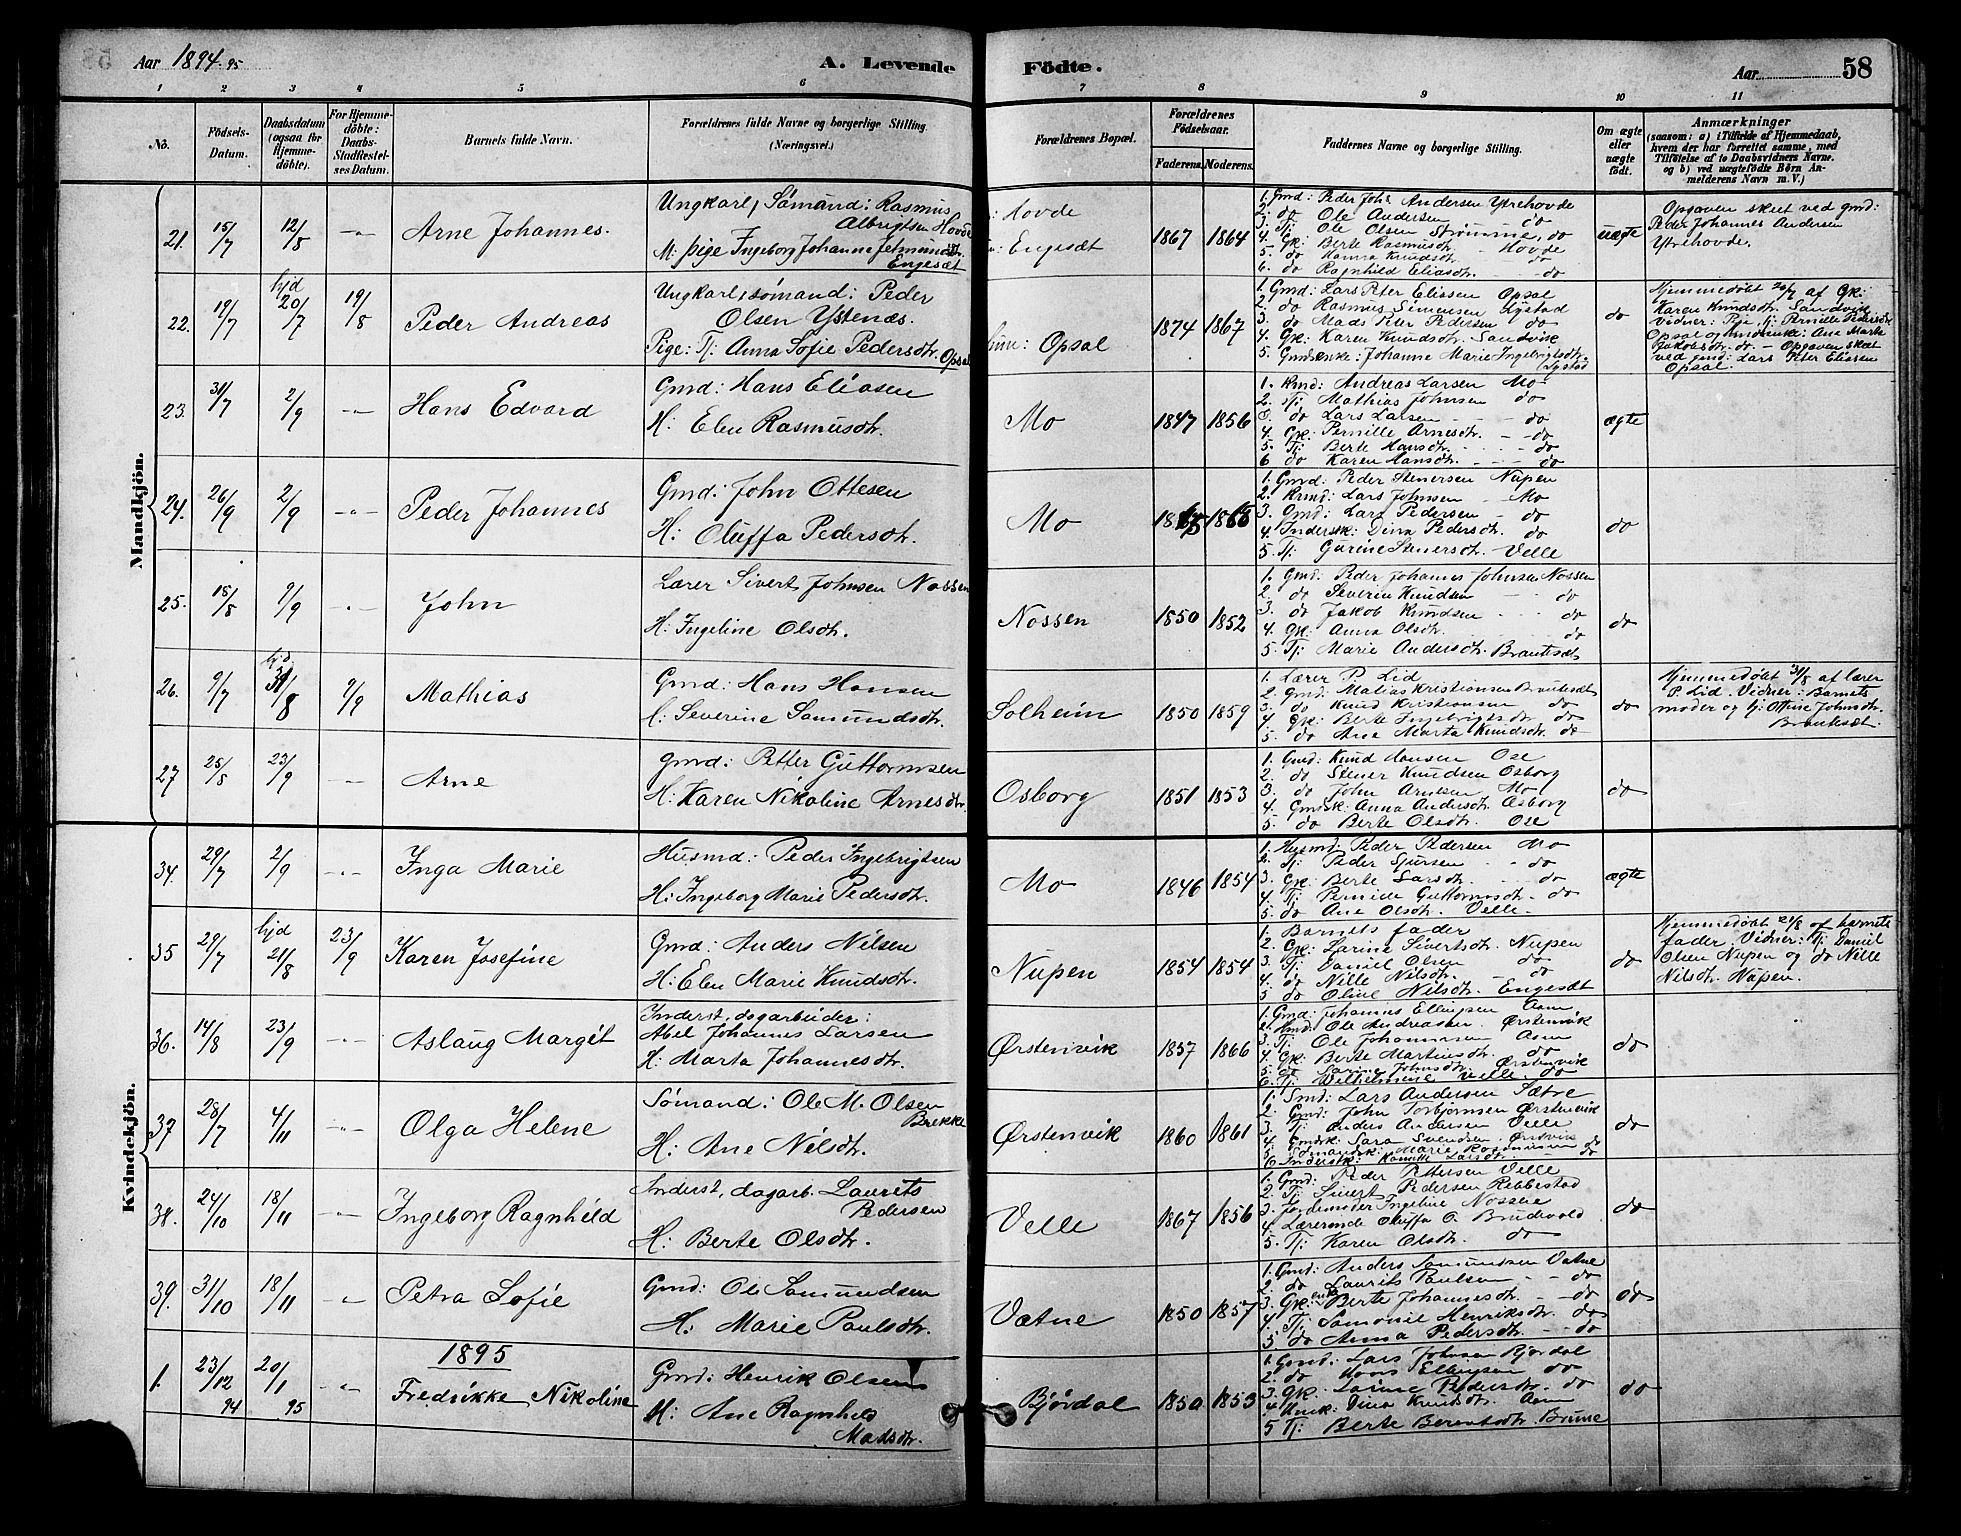 Aar 1894. 95
A. Levende
Födte.
Aar
58
1 2 3 4 5 6 7 8 9 10 11
No.
Födsels-Datum.
Daabsdatum (ogsaa for Hjemmedöbte).
For Hjemmedöbte: Daabs-Stadfæstelses Datum.
Barnets fulde Navn.
Forældrenes fulde Navne og borgerlige Stilling. (Næringsvei.)
Forældrenes Bopæl.
Forældrenes Födselsaar.
Faderens. Moderens.
Faddernes Navne og borgerlige Stilling.
Om ægte eller uægte födt.
Anmærkninger
(saasom: a) i Tilfælde af Hjemmedaab, hvem der har forrettet samme, med Tilföielse af to Daabsvidners Navne, og b) ved uægtefödte Börn Anmelderens Navn m. V.)
Mandkjön.
21. 15/7 12/8 -"- Arne Johannes.
Ungkarl, Sømand: Rasmus
Albrigtsen Hovde
M: pige Ingeborg Johanne Jetmundsdtr.
Engesæt
: Hovde
: Engesæt
1867 1864
1. Gmd: Peder Johs Andersen Ytrehovde
2. do Ole Andersen do
3. Tj: Ole Olsen Strømme, do
4. Gk: Berte Rasmusdtr. Hovde
5. do Hanna Knudsdtr. do
6. do Ragnhild Eliasdtr. do
uægte
Opgaven skeet ved gmd:
Peder Johannes Andersen
Ytrehovde.
22. 19/7 hjd 20/7 19/8 Peder Andreas
Ungkarl, sømand: Peder
Olsen Ystenæs.
Pige: Tj: Anna Sofie Pedersdtr. Opsal
: Opsal
1874 1867
1. Gmd: Lars Peter Eliasen Opsal
2. do Rasmus Simensen Lystad
3. do Mads Peter Pedersen do
4. Gk: Karen Knudsdtr. Sandvik
5. Gmdsenke: Johanne Marie Ingebrigtsdtr.
Lystad
do
Hjemmedøbt 20/7 af Gk:
Karen Knudsdtr. Sandvik
Vidner: Pige, tj: Pernille Pedersdtr
Opsal og Ane Marta
Jakobsdtr. do – Opgaven skeet
ved gmd: Lars Peter Eliasen
Opsal.
23. 31/7 2/9 -"- Hans Edvard
Gmd: Hans Eliasen
H: Elen Rasmusdtr.
Mo
1847 1856
1. Kmd: Andreas Larsen Mo
2. Tj: Mathias Johnsen do
3. do Lars Larsen do
4. Gk: Pernille Arnesdtr. do
5. Tj: Berte Hansdtr. do
6 do Karen Hansdtr. do
ægte
24. 26/9 2/9 -"- Peder Johannes
Gmd: John Ottesen
H: Oluffa Pedersdtr.
Mo
1868
1. Gmd: Peder Stenersen Nupen
2. Kmd: Lars Johnsen Mo
3. Gmd: Lars Pedersen do
4. Indersk: Dina Pedersdtr. do
5. Tj: Gurine Stenersdtr. Velle
do
25. 15/8 9/9 -"- John
Lærer Sivert Johnsen Nossen
H: Ingeline Olsdtr.
Nossen
1850 1852
1. Gmd: Peder Johannes Johnsen Nossen
2. do Severin Knudsen do
3. do Jakob Knudsen do
4. Gk: Anna Olsdtr. do
5. Tj: Marie Andersdtr. Brautesæt
do
26. 9/7 hjd. 31/8 9/9 Mathias
Gmd: Hans Hansen
H: Severine Samundsdtr.
Solheim
1850 1859
1. Lærer P. Lid
2. Gmd: Matias Kristiansen Brautesæt
3. do Knud Kristiansen do
4. Gk: Berte Ingebrigtsdtr. do
5. do Ane Marta Knudsdtr. do
do
Hjemmedøbt 31/8 af lærer
P. Lid. Vidner: Barnets
moder og tj: Oline Johnsdtr.
Brautesæt.
27 25/8 23/9 -"- Arne
Gmd: Petter Guttormsen
H: Karen Nikoline Arnesdtr.
Osborg
1851 1853
1. Gmd: Knud Hansen Ose
2. do Stener Knudsen Osborg
3. do John Arnesen Mo
4. Gmdsk: Anna Andersdtr. Osborg
5. do Berte Olsdtr. Ose
do
Kvindekjön.
34. 29/7 2/9 -"- Inga Marie
Husmd: Peder Ingebrigtsen
H: Ingeborg Marie Pedersdtr.
Mo
1846 1854
1. Husmd: Peder Pedersen Mo
2. Tj: Peder Sjursen do
3. Gk: Berte Larsdtr. do
4. Tj: Pernille Guttormsdtr. do
5. do Ane Olsdtr. Velle.
ægte
35 29/7 hjd 21/8 23/9 Karen Josefine
Gmd: Anders Nilsen
H: Elen Marie Knudsdtr.
Nupen
1854 1854
1. Barnets fader
2. Gk: Larine Sivertsdtr. Nupen
3. Tj: Daniel Olsen do
4. do Nille Nilsdtr. do
5 do Oline Nilsdtr. Engesæt
do
Hjemmedøbt 21/8 af barnets
fader. Vidner: Tj: Daniel
Olsen Nupen og do Nille
Nilsdtr. Nupen.
36. 14/8 23/9 -"- Aslaug Margit
Inderst, dagarbeider:
Abel Johannes Larsen
H: Marta Johannesdtr.
Ørstenvik
1857 1866
1. Gmd: Johannes Ellingsen Aam
2. Gmd: Ole Andreasen Ørstenvik
3. Tj: Ole Johannesen Aam
4. Gk: Berte Martinusdtr. do
5. do Johnsdtr. Ørstenvik
6. Tj: Wilhelmine Velle do
do
37 28/7 4/11 -"- Olga Helene
Sømand: Ole M. Olsen
Brekke
H: Ane Nilsdtr.
Ørstenvik
1860 1861
1. Smd: Lars Andersen Sætre
2. Gmd: John Torbjørnsen Ørstenvik
3. Tj: Anders Andersen Velle
4. Gmdsk: Sara Svendsen, Ørstvik
5. Sømandsk: Marie Rasmussen do
6. Indersk: Larsdtr. do
do
38. 24/10 18/11 -"- Ingeborg Ragnhild
Inderst, dagarb. Laurits
Pedersen
H: Berte Olsdtr.
Velle
1867 1856
1. Gmd: Peder Pettersen Velle
2. Tj: Sivert Pedersen Rebbestad
3. Jordemoder Ingeline Nossen
4. Lærerinde Oluffa O. Brudevold
5. Tj: Karen Olsdtr. do
do
39. 31/10 18/11 -"- Petra Sofie
Gmd: Ole Samundsen
H: Marie Paulsdtr.
Vatne
1850 1857
1. Gmd: Anders Samundsen Vatne
2. do Laurits Paulsen do
3. Gk: enke Berte Johannesdtr. do
4. Tj: Samonie Henriksdtr. do
5 do Anna Pedersdtr. do
do
1895
1. 23/12 94 20/1 95 -"- Fredrikke Nikoline
Gmd: Henrik Olsen
H: Ane Ragnhild
Madsdtr.
Bjørdal
1850 1853
1. Gmd: Lars Johnsen Bjørdal
2. do Hans Ellingsen do
3. Gk: Larine Pedersdtr. do
4. Kmk: Dina Knudsdtr. Aam
5 Tj: Berte Berentsdtr. Brune
do